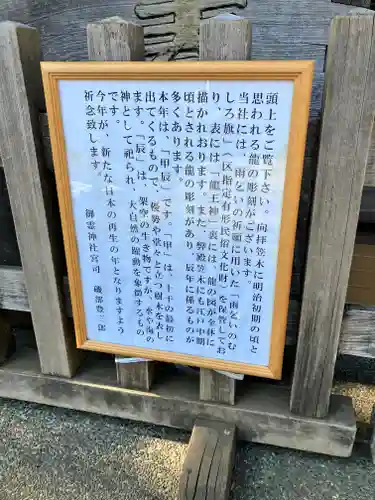 頭上をご覧下さい。向拝笠木に明治初期の頃と
思われる龍の彫刻がございます。
当社には、雨乞いの祈願に用いた「雨乞いのむ
しろ旗」(区指定有形民俗文化財)を保管してお
り、表には「龍王神」裏には、龍の図が全体に
描かれております。また、弊殿笠木にも江戸中期
頃とされる龍の彫刻があり、辰年に係るものが
多くあります。
本年は、「甲辰」です。「甲」は、十干の最初に
出てくるもので、態勢や堂々と立つ樹木を表し
ます。「辰」は、架空の生き物ですが、水や海の
神として祀られ、大自然の躍動を象徴するもの
です。
今年が、新たな日本の再生の年となりますよう
祈念致します。
御霊神社宮司 磯部豊三郎